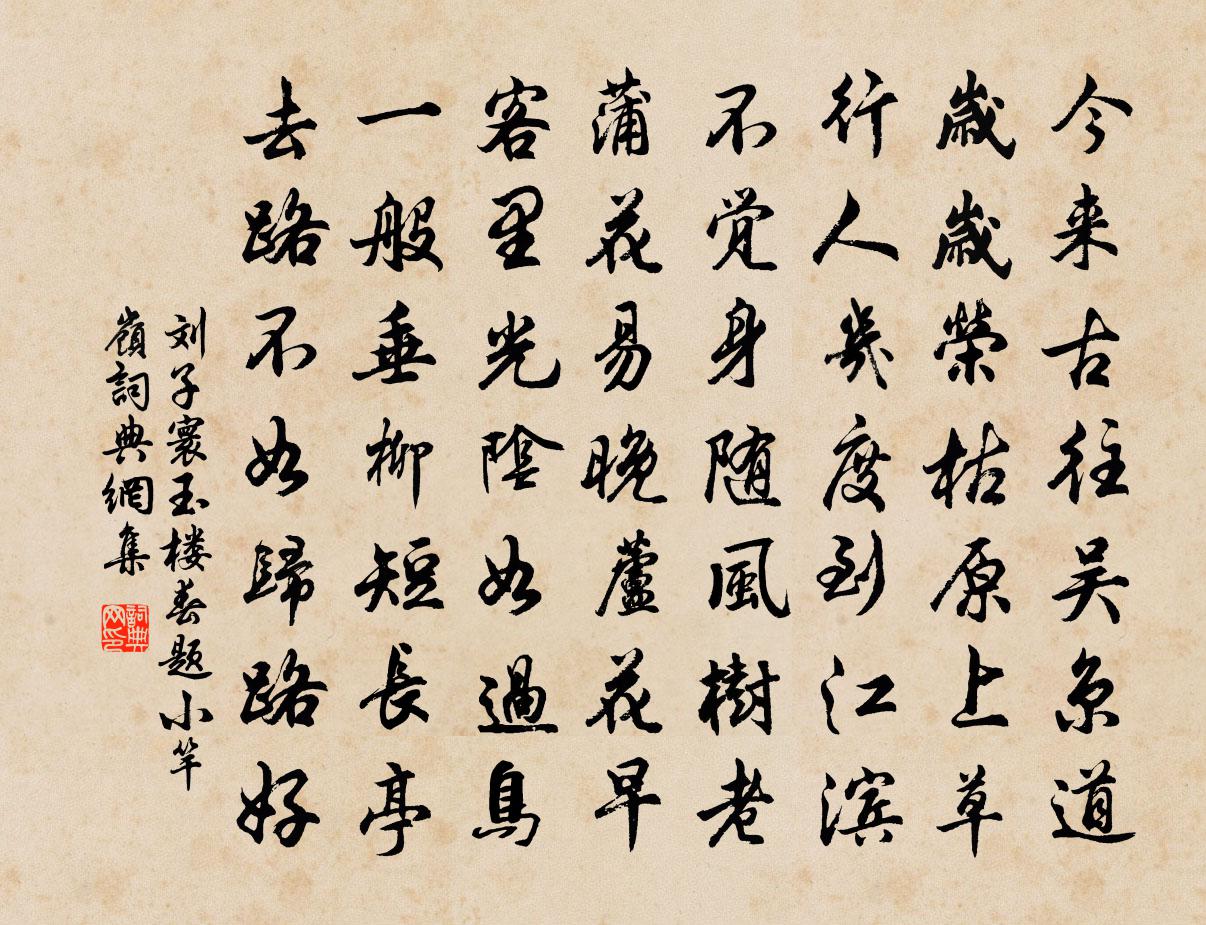 今来古往吴京道
歳歳榮枯原上草
行人幾度到江滨
不觉身随風樹老
蒲花易晚蘆花早
客里光陰如過鳥
一般垂柳短長亭
去路不如歸路好
刘子寰玉楼春题小竿
嶺詞典網集
詞典网印